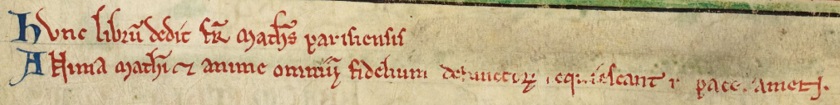 Hunc librū dedit fr̄ Mathˢ parisiensis
Anima mathi ⁊ anime omniū fidelium defunctoꝝ requiescant ī pace. amen.